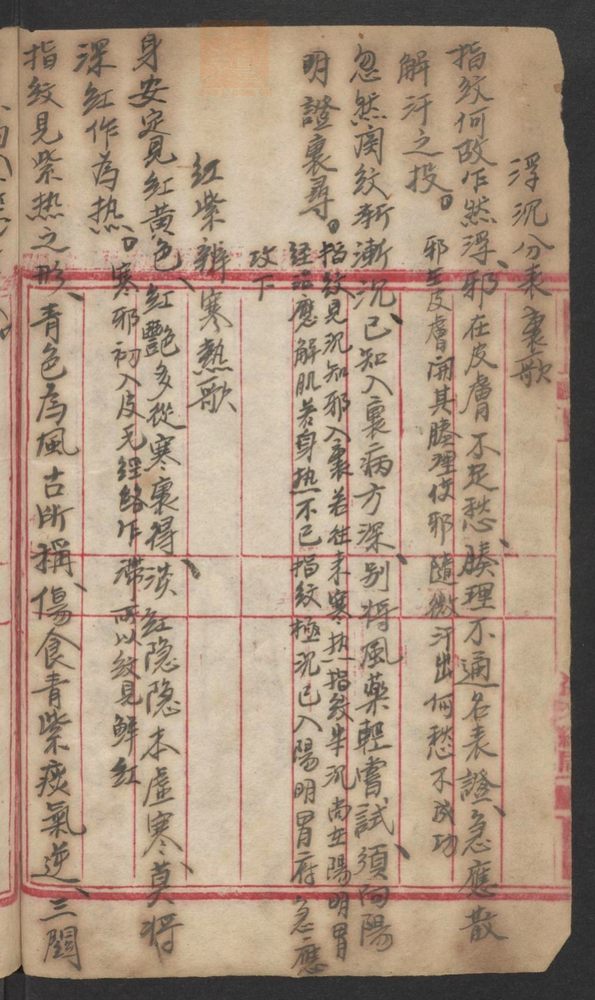 浮沉分表裏歌
指紋何故乍然浮、邪在皮膚不足愁、腠理不通名表證、急應散
解汗之投。
邪在皮膚開其腠理使邪隨微汗出何愁不成功
忽然関紋漸漸沉、已知入裏病方深、別將風藥輕嘗試、須向陽
明證裏尋。
指紋見沉知邪入裏若往来寒热指紋半沉尚在陽明胃
経應解肌若身热不已指紋極沉已入陽明胃府急應
攻下
紅紫辨寒熱歌
身安定見紅黃色、紅艷多從寒裏得、淡紅隐隐本虛寒、莫將
深紅作為热。
寒邪初入皮毛經絡乍滞所以紋見鮮紅
指紋見紫热之形、青色為風古所稱、傷食青紫痰氣逆、三關